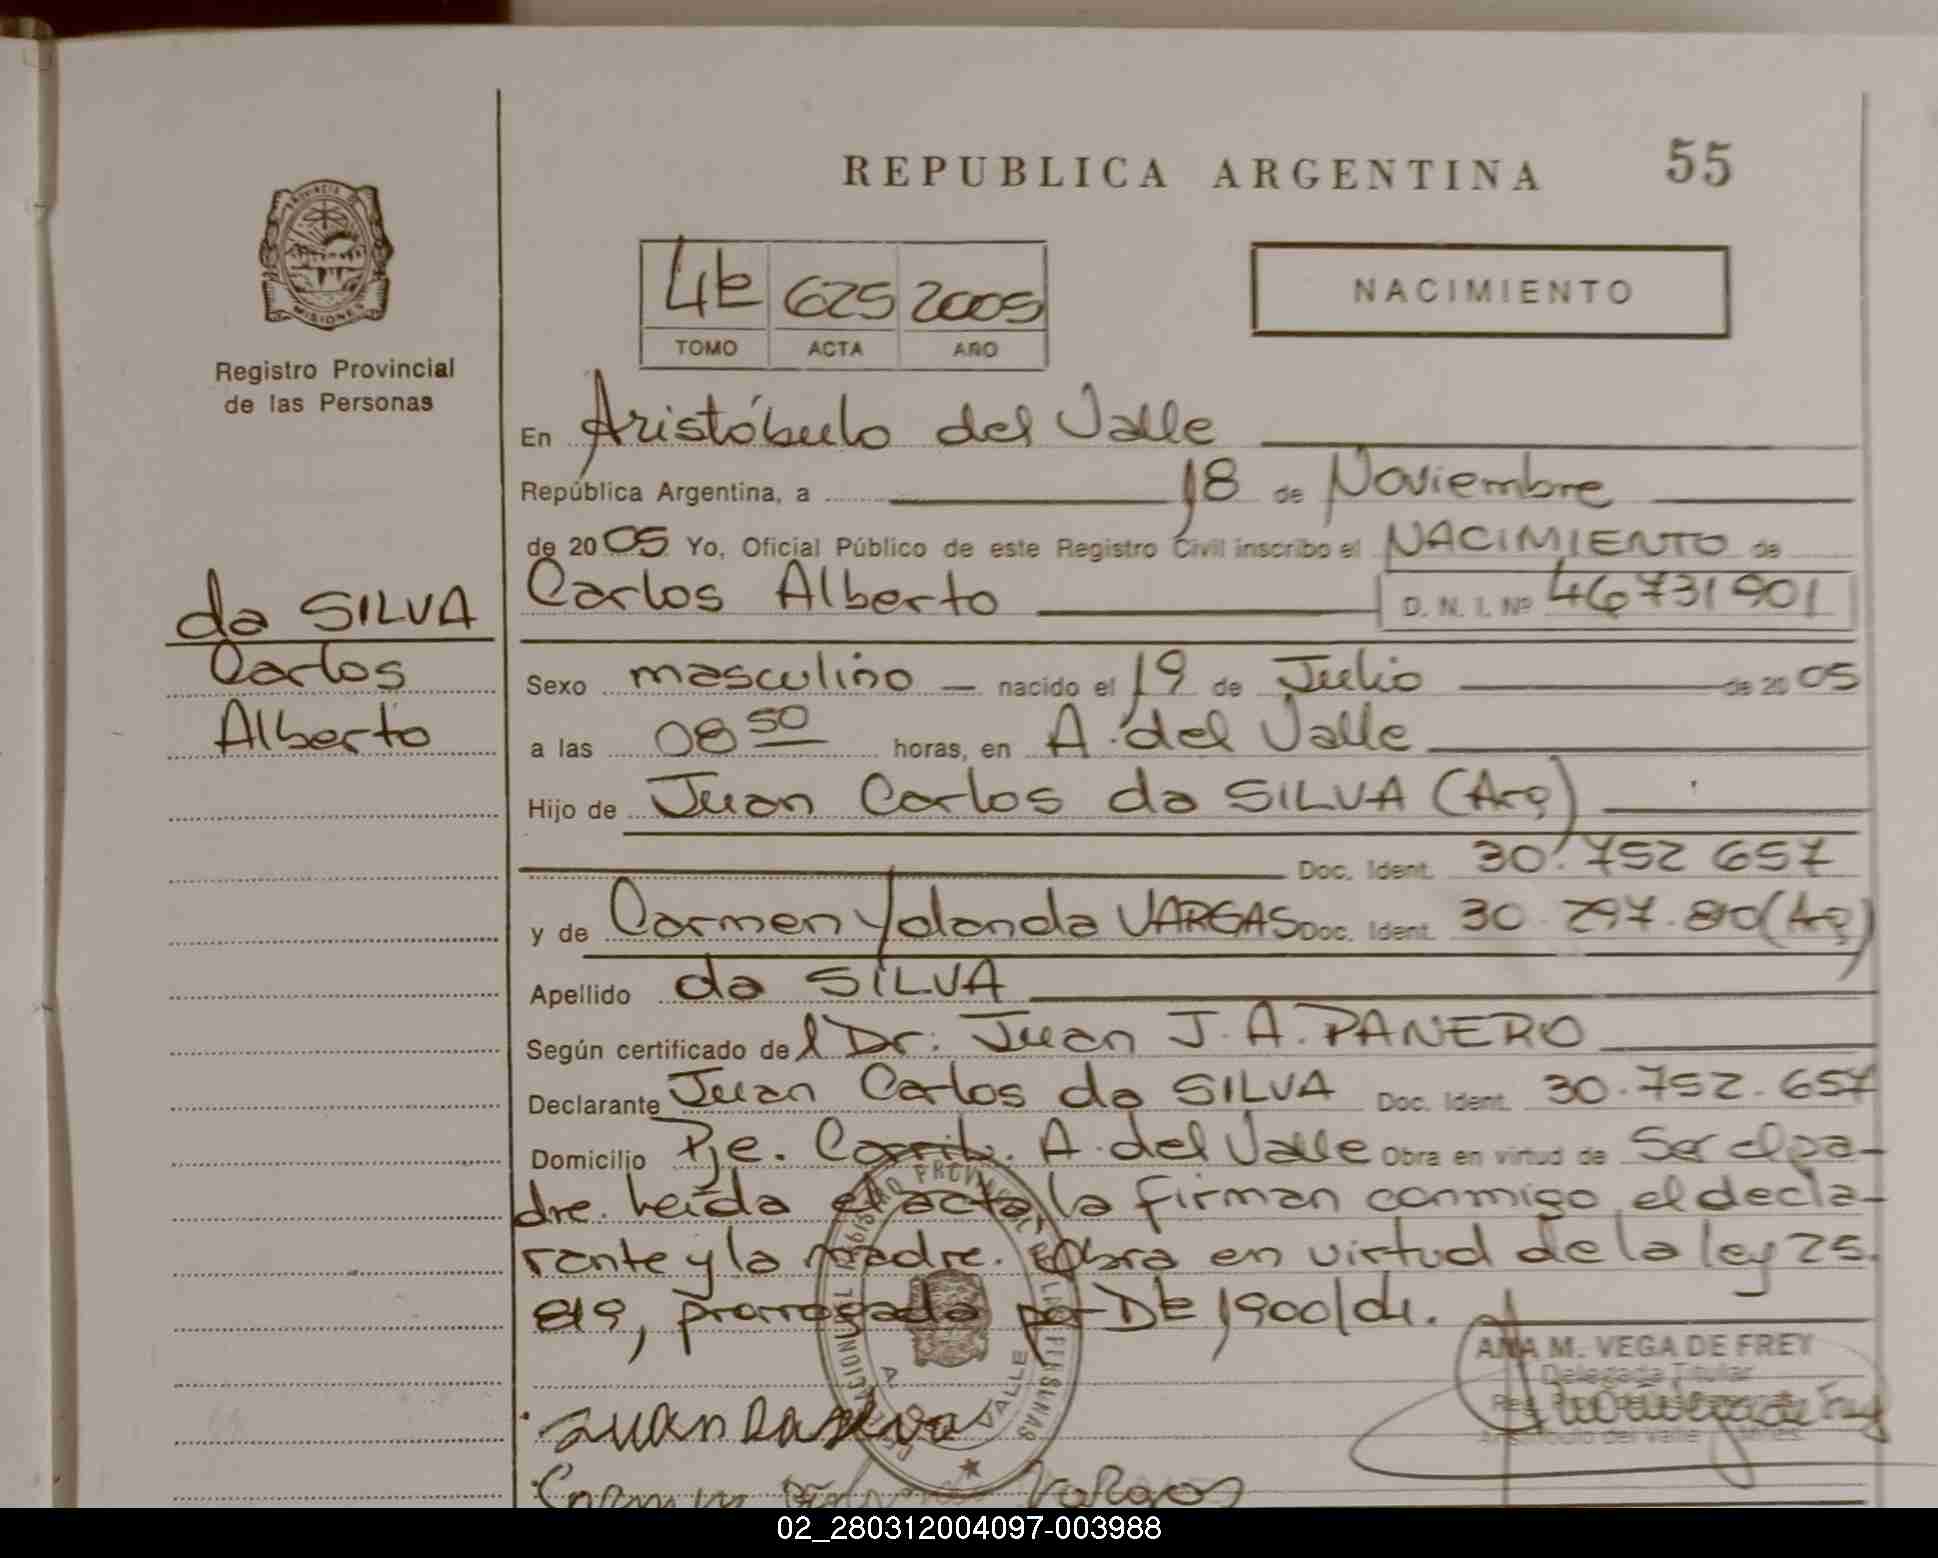 REPUBLICA ARGENTINA
55
PROVINCIA DE
MISIONES
Registro Provincial
de las Personas
625 2005
TOMO ACTA AÑO
NACIMIENTO
En Aristóbulo del Valle
República Argentina, a 18 de Noviembre
de 2005 Yo, Oficial Público de este Registro Civil inscribo el NACIMIENTO de
Carlos Alberto D. N. I. Nº 46731901
da SILVA
Carlos
Alberto
Sexo masculino nacido el 19 de Julio de 2005
a las 08 50 horas, en A. del Valle
Hijo de Juan Carlos da SILVA (Arg)
Doc. Ident. 30.752 657
y de Carmen Yolanda VARGAS Doc. Ident. 30.797.810 (Arg)
Apellido da SILVA
Según certificado del Dr. Juan J. A. PANERO
Declarante Juan Carlos da SILVA Doc. Ident. 30.752.657
Domicilio Pje. A. del Valle Obra en virtud de Ser el pa-
dre. Leída el acta, la firman conmigo el decla-
rante y la madre. Obra en virtud de la ley 25.
819, prorrogada por 1900/04.
ANA M. VEGA DE FREY
Delegada Titular
Aristóbulo del Valle
Juan Da Silva
Vargas
02_280312004097-003988